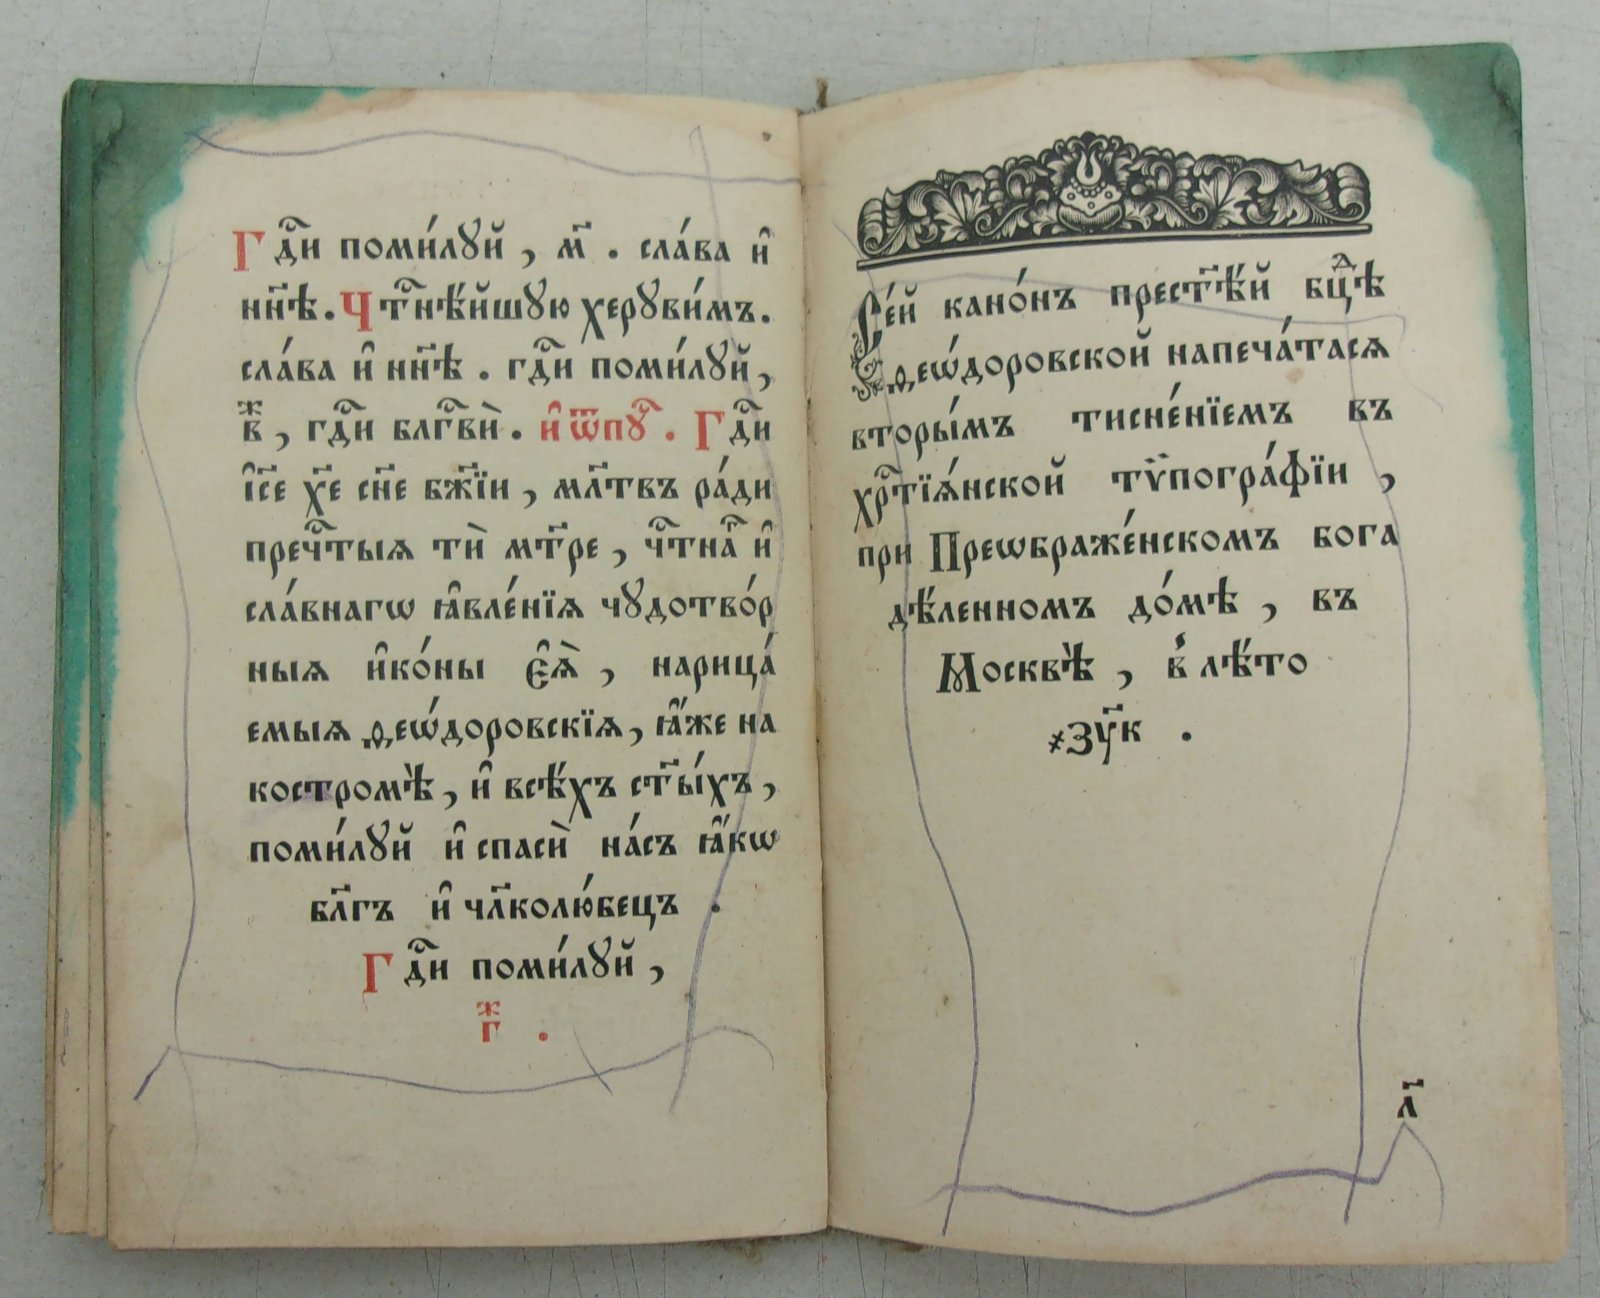 Гдⷭ҇и поми́лꙋй , м҃ . сла́ва и҆
нн҃ѣ . Чтⷭ҇нѣ́йшꙋю херꙋви́мъ .
сла́ва и҆ нн҃ѣ . гдⷭ҇и поми́лꙋй ,
в҃ⷤ , гдⷭ҇и блгⷭ҇вѝ . и҆ ѿпꙋⷭ҇ . Гдⷭ҇и
і҆с҃е х҃е сн҃е бж҃їи , мл҃твъ ра́ди
пречⷭ҇тыѧ тѝ мт҃ре , чⷭ҇тнаⷢ҇ и҆
сла́внагѡ ꙗ҆вле́нїѧ чꙋдотво́р
ныѧ и҆ко́ны є҆ѧ̀ , нарица́
емыѧ ѳеѡ́доровскїѧ , ꙗ҆́же на
костромѣ̀ , и҆ всѣ́хъ ст҃ы́хъ ,
поми́лꙋй и҆ спасѝ на́съ ꙗ҆́кѡ
бл҃гъ и҆ чл҃колю́бецъ .
Гдⷭ҇и поми́лꙋй ,
г҃ⷤ .
Се́й кано́нъ прест҃ѣ́й бцⷣѣ
ѳеѡ́доровской напеча́тасѧ
вторы́мъ тисне́нїемъ въ
хрⷭ҇тїѧ́нской тѷпогра́фїи ,
при Преѡбраже́нскомъ бога
дѣ́ленномъ до́мѣ , въ
Москвѣ̀ , в̾ лѣ́то
҂зу҃к .
л҃